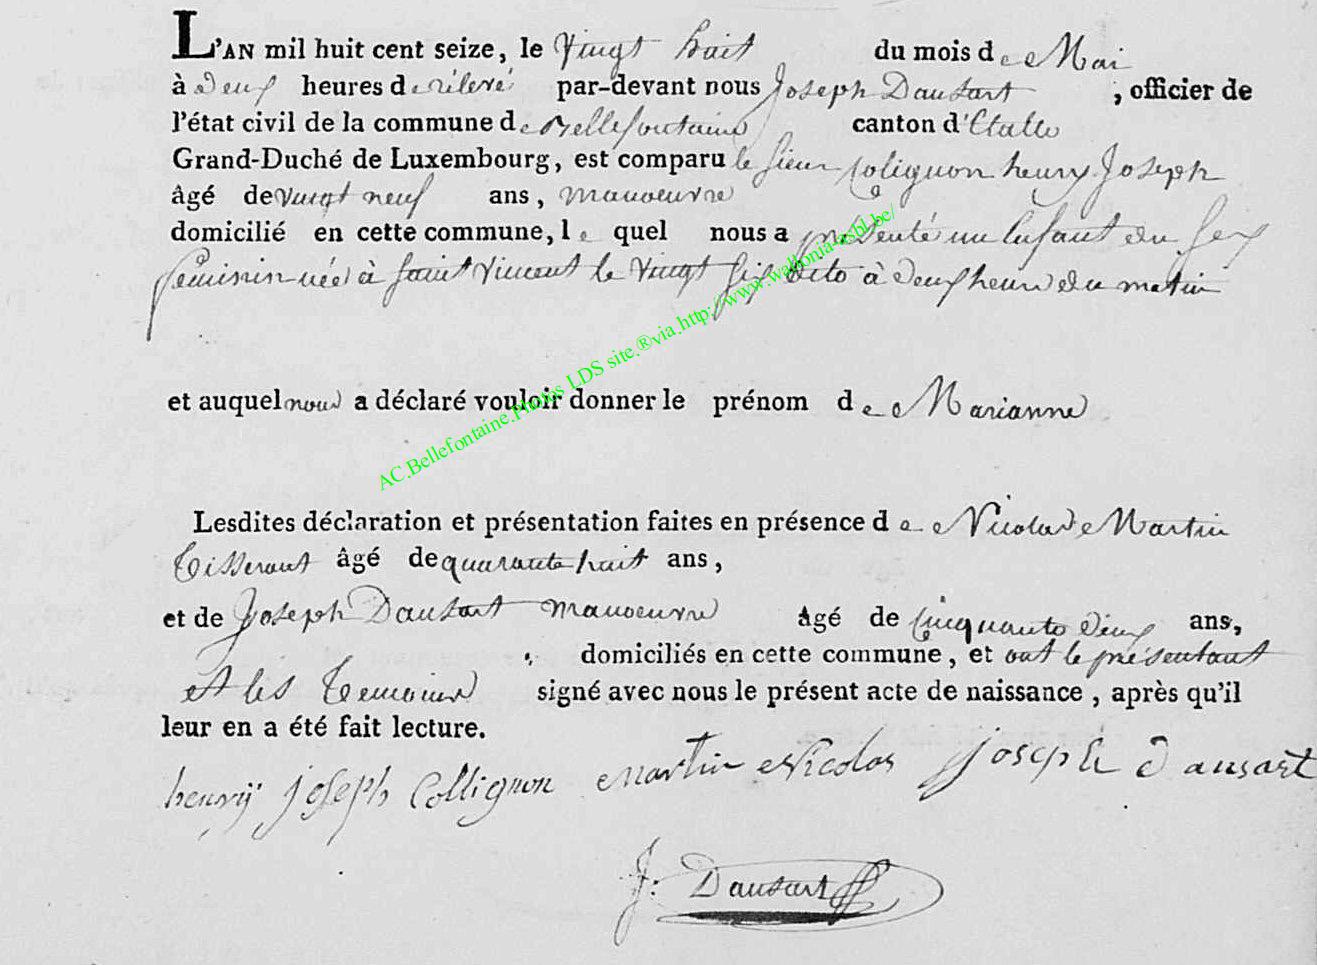 L'AN mil huit cent seize, le vingt huit du mois de Mai
à deux heures de rélevé par-devant nous Joseph Dausart, officier de
l'état civil de la commune de Bellefontaine canton d'Etalle
Grand-Duché de Luxembourg, est comparu le sieur Colignon henry Joseph
âgé de vingt neuf ans, manoeuvre
domicilié en cette commune, le quel nous a présenté un Enfant du sex
féminin née à saint Vincent le vingt six dito à deux heure du matin
et auquel nous a déclaré vouloir donner le prénom de Marianne
Lesdites déclaration et présentation faites en présence de Nicolas Martin
Tisserant âgé de quarante huit ans,
et de Joseph Dausart manoeuvre âgé de Cinquante deux ans,
domiciliés en cette commune, et ont le présentant
et les Temoins signé avec nous le présent acte de naissance, après qu'il
leur en a été fait lecture.
henrÿ joseph Collignon Martin Nicolas joseph dausart
J: Dausart
AC.Bellefontaine.Photos LDS site.®via.http://www.wallonia-asbl.be/